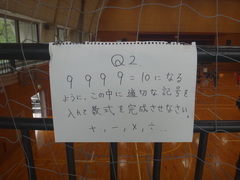 Q2.
9 9 9 9 = 10 になる
ように、この中に適切な記号を
入れて数式を完成させなさい。
+, -, ×, ÷ ...